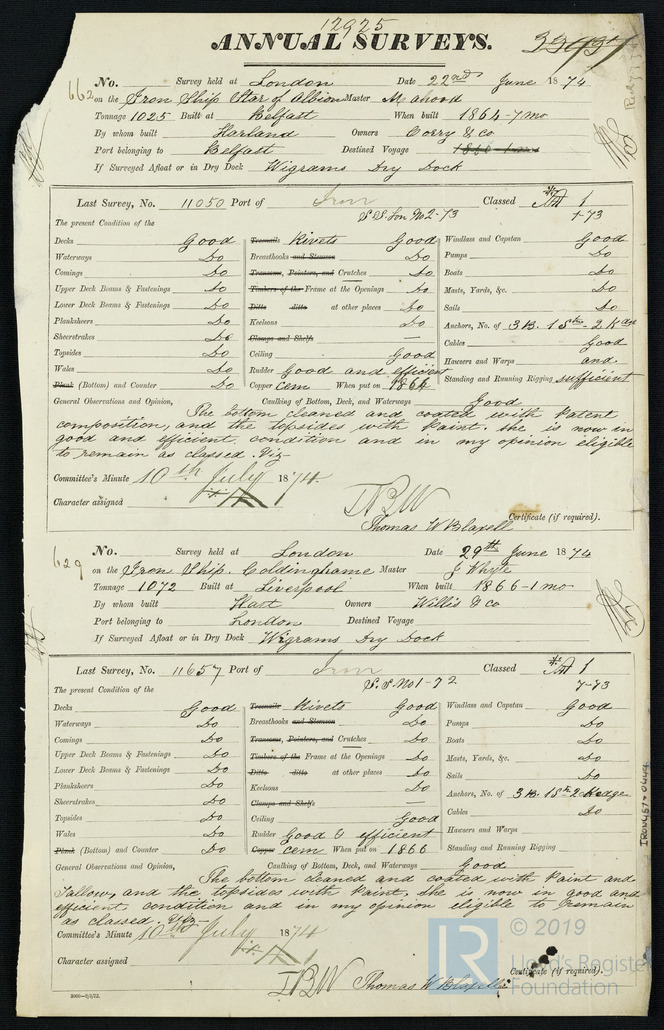 12925
ANNUAL SURVEYS.
662 No. Survey held at London Date 22nd June 1874
on the Iron Ship Star of Albion Master Mahood
Tonnage 1025 Built at Belfast When built 1864-7mo
By whom built Harland Owners Corry & co
Port belonging to Belfast Destined Voyage
If Surveyed Afloat or in Dry Dock Wigrams Dry Dock
Last Survey, No. 11050 Port of Iron Classed A 1
S.S. Lon No 2-73 1-73
The present Condition of the
Decks Good Treenails Rivets Good Windlass and Capstan Good
Waterways Do Breasthooks and Stemson Do Pumps Do
Comings Do Transoms, Pointers, and Crutches Do Boats Do
Upper Deck Beams & Fastenings Do Timbers of the Frame at the Openings Do Masts, Yards, &c. Do
Lower Deck Beams & Fastenings Do Ditto ditto at other places Do Sails Do
Planksheers Do Keelsons Do Anchors, No. of 3 B. 1 S 2 K
Sheerstrakes Do Clamps and Shelfs — Cables Good
Topsides Do Ceiling Good Hawsers and Warps and
Wales Do Rudder Good and efficient Standing and Running Rigging sufficient
Plank (Bottom) and Counter Do Copper cem When put on 1864
General Observations and Opinion, Caulking of Bottom, Deck, and Waterways Good
The bottom cleaned and coated with Patent
composition, and the topsides with Paint. she is now in
good and efficient condition and in my opinion eligible
to remain as classed. Viz—
Committee's Minute 10th July 1874
Character assigned
Thomas W Blaxell Certificate (if required).
629 No. Survey held at London Date 29th June 1874
on the Iron Ship. Coldinghame Master J Whyte
Tonnage 1072 Built at Liverpool When built 1866-1mo
By whom built Hart Owners Willis & co
Port belonging to London Destined Voyage
If Surveyed Afloat or in Dry Dock Wigrams Dry Dock
Last Survey, No. 11657 Port of Iron Classed A 1
S.S. No 1-72 7-73
The present Condition of the
Decks Good Treenails Rivets Good Windlass and Capstan Good
Waterways Do Breasthooks and Stemson Do Pumps Do
Comings Do Transoms, Pointers, and Crutches Do Boats Do
Upper Deck Beams & Fastenings Do Timbers of the Frame at the Openings Do Masts, Yards, &c. Do
Lower Deck Beams & Fastenings Do Ditto ditto at other places Do Sails Do
Planksheers Do Keelsons Do Anchors, No. of 3 B. 1 S 2 Kedge
Sheerstrakes Do Clamps and Shelfs — Cables Do
Topsides Do Ceiling Good Hawsers and Warps
Wales Do Rudder Good & efficient Standing and Running Rigging
Plank (Bottom) and Counter Do Copper cem When put on 1866
General Observations and Opinion, Caulking of Bottom, Deck, and Waterways Good
The bottom cleaned and coated with Paint and
Tallow, and the topsides with Paint. she is now in good and
efficient condition and in my opinion eligible to remain
as classed. Viz—
Committee's Minute 10th July 1874
Character assigned
Thomas W Blaxell Certificate (if required).
2000—2/2/72.
IRON457-0444
LR © 2019
Lloyd's Register
Foundation